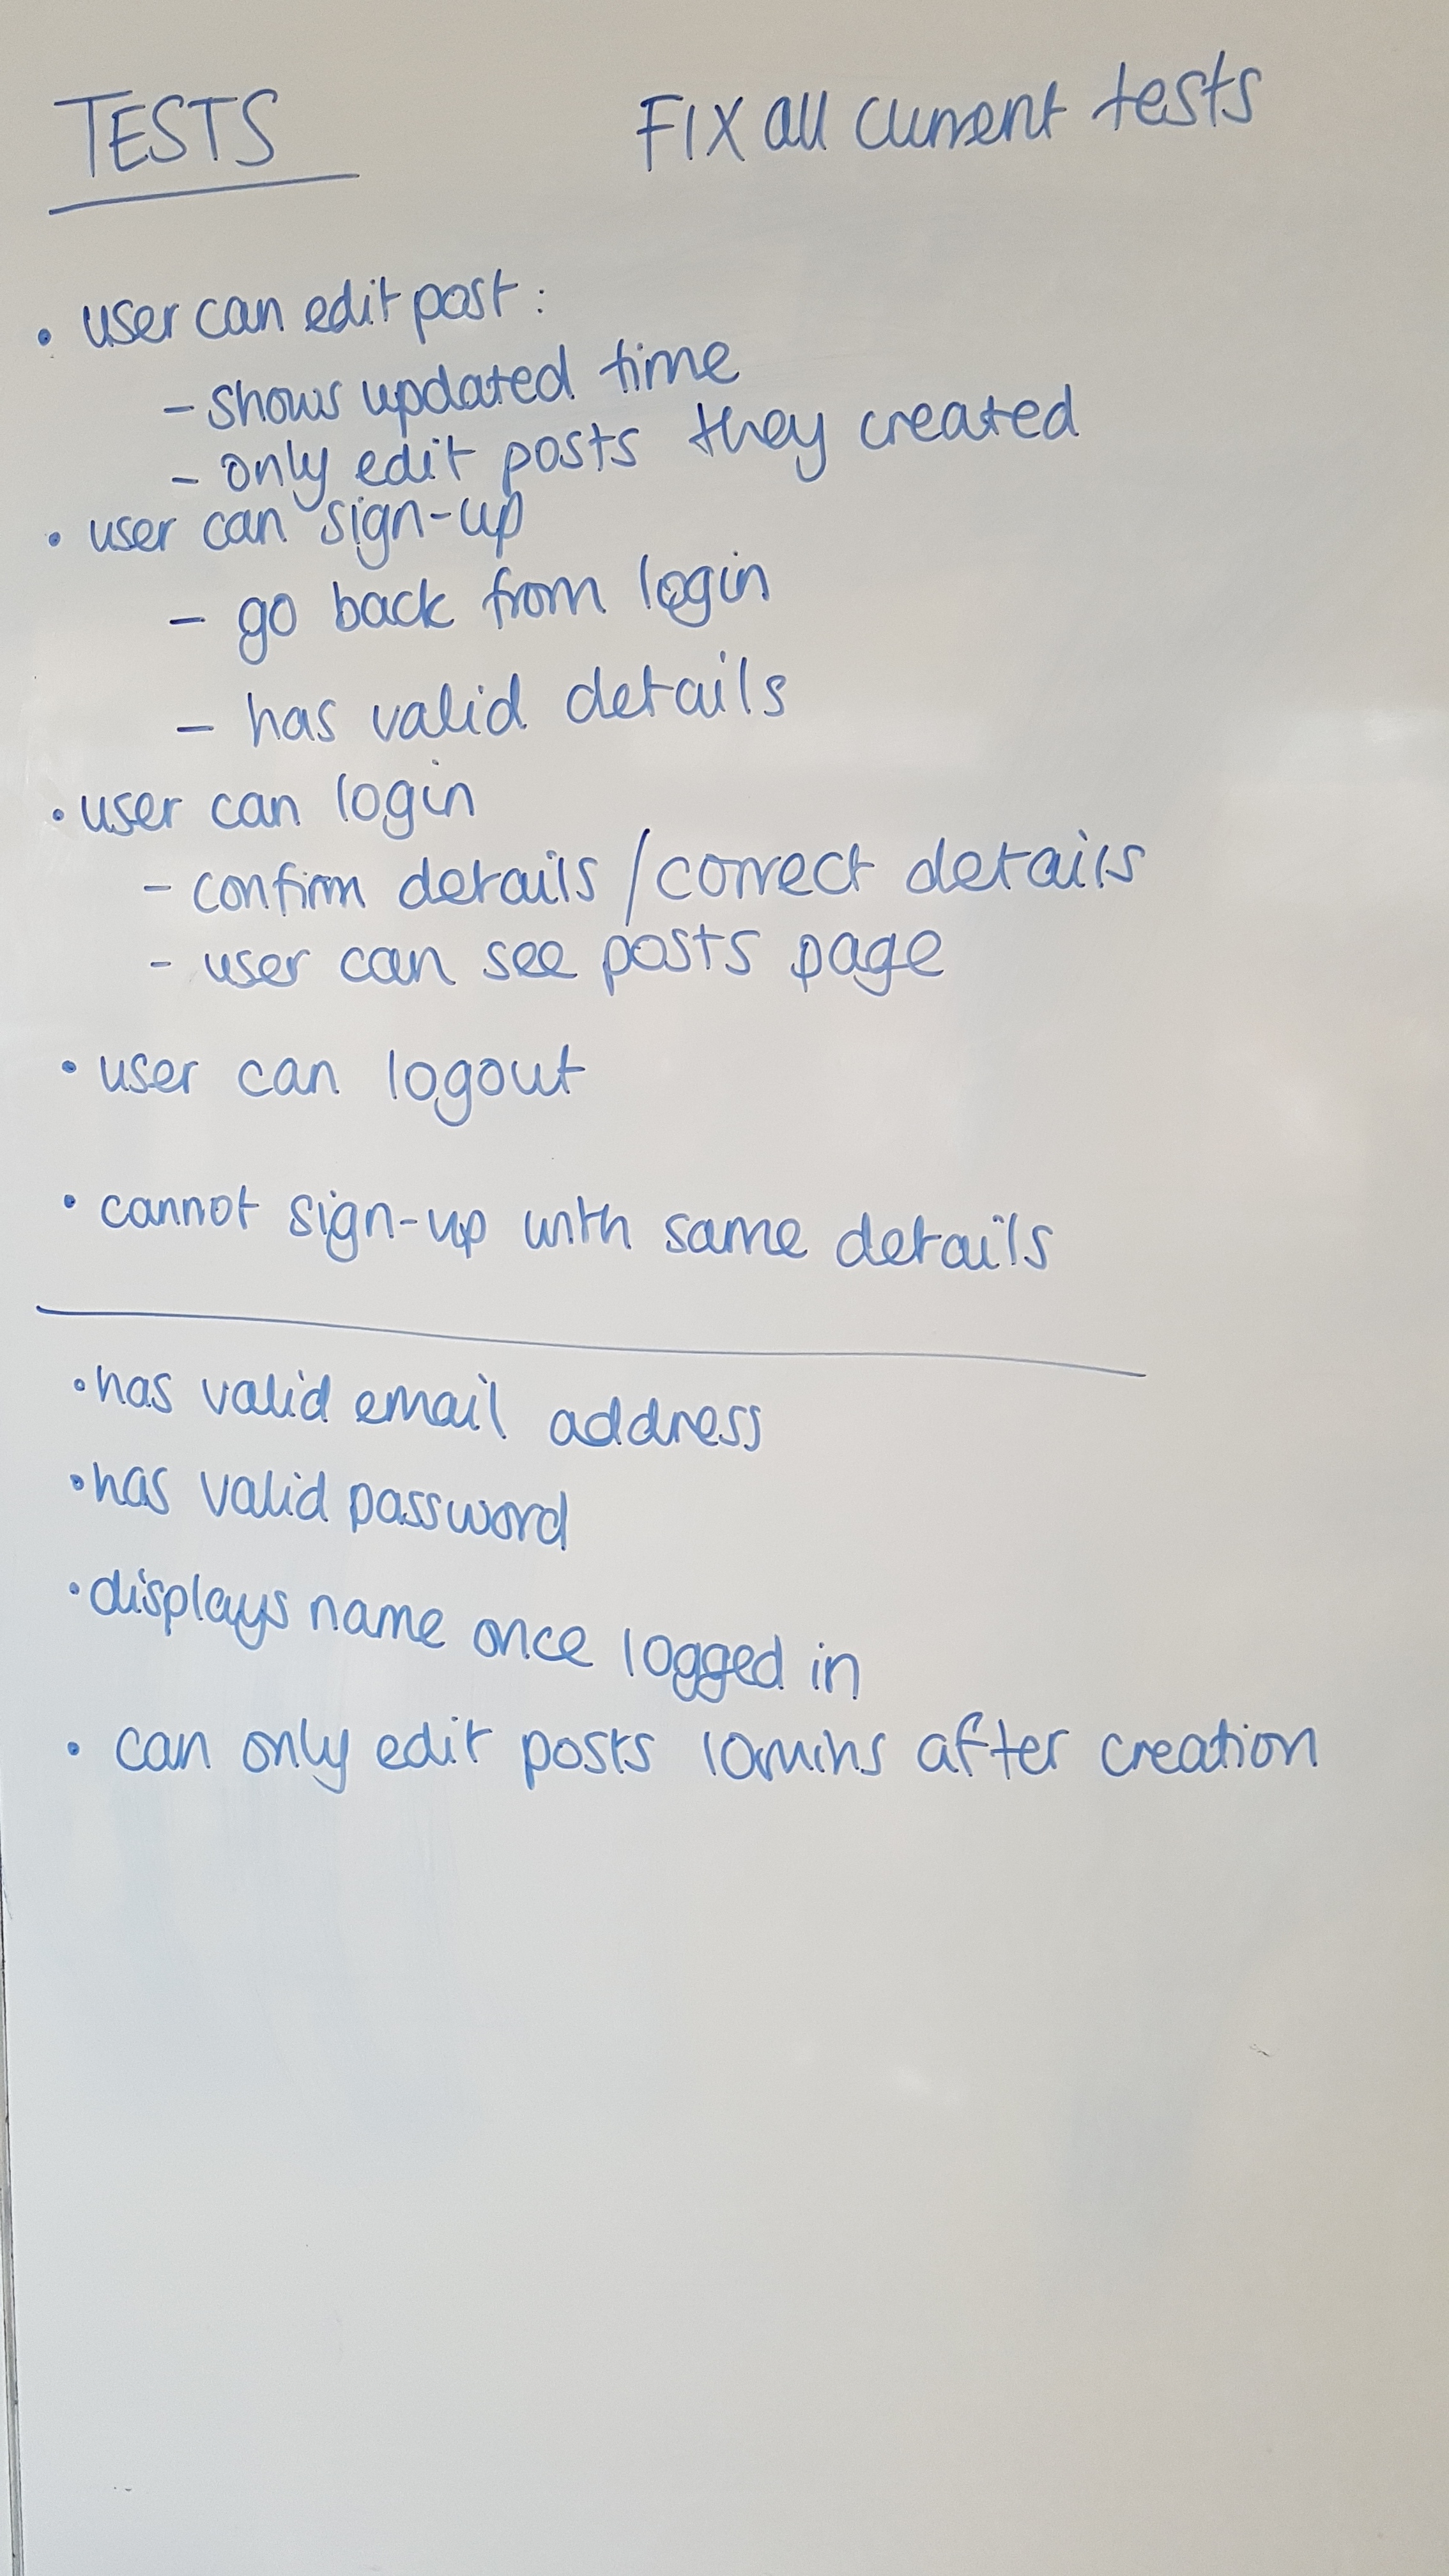 TESTS
FIX all current tests
• user can edit post:
- shows updated time
- only edit posts they created
• user can sign-up
- go back from login
- has valid details
• user can login
- confirm details / correct details
- user can see posts page
• user can logout
• cannot sign-up with same details
• has valid email address
• has valid password
• displays name once logged in
• can only edit posts 10mins after creation